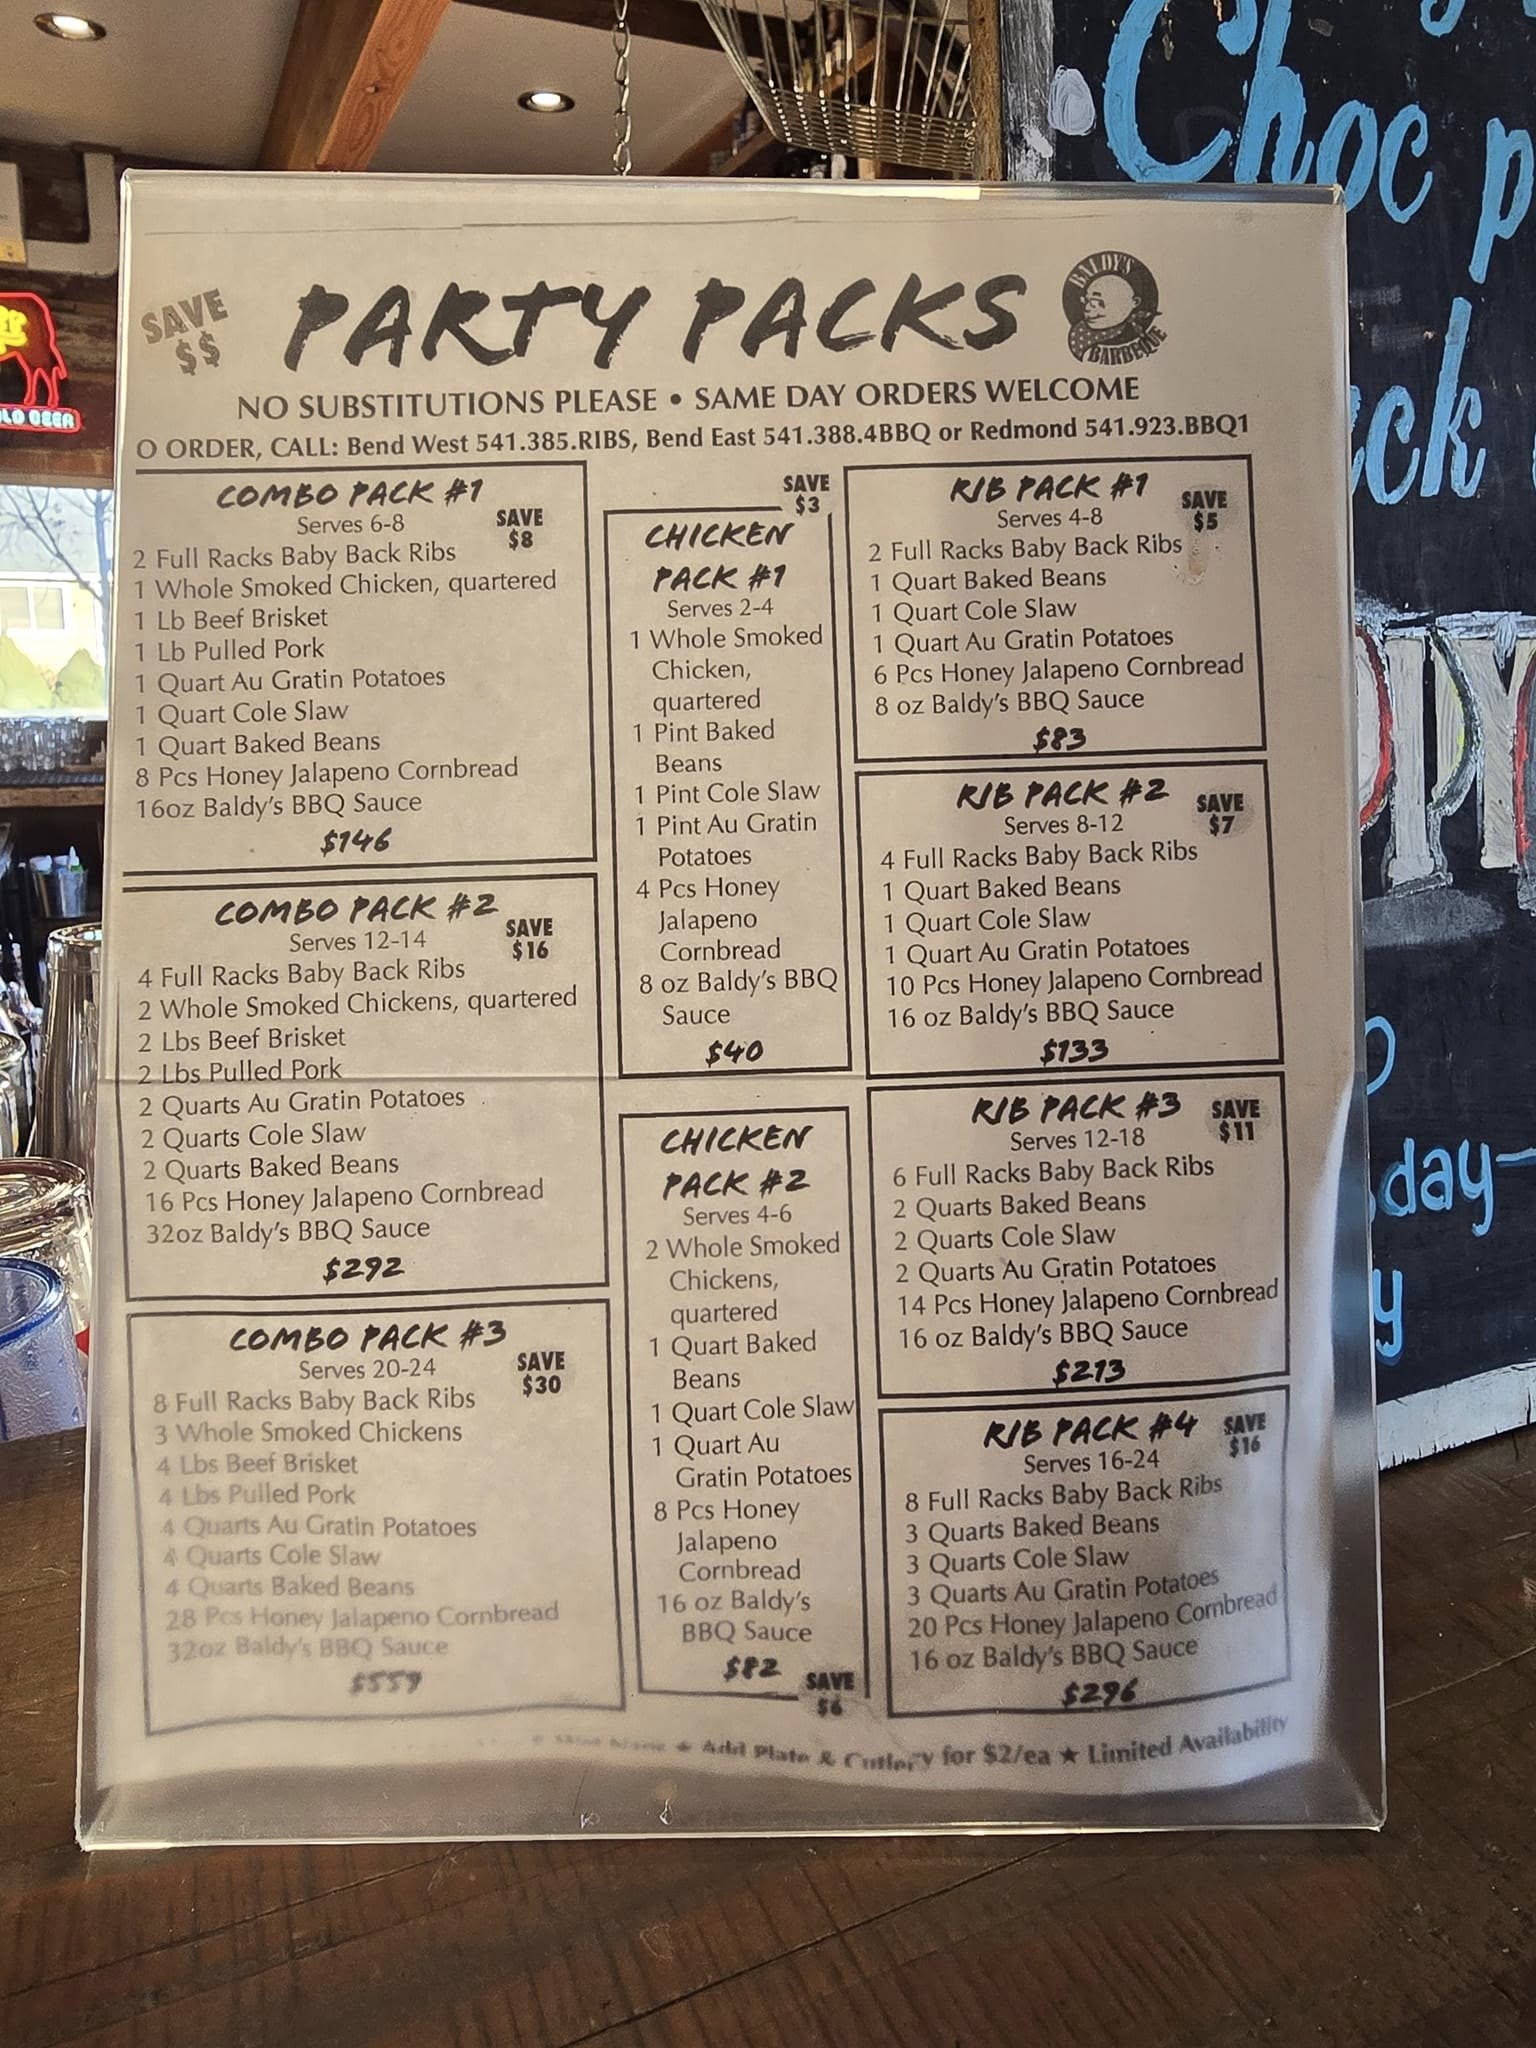 SAVE
$$
PARTY PACKS
BALDY'S
BARBEQUE
NO SUBSTITUTIONS PLEASE • SAME DAY ORDERS WELCOME
O ORDER, CALL: Bend West 541.385.RIBS, Bend East 541.388.4BBQ or Redmond 541.923.BBQ1
COMBO PACK #1
Serves 6-8
SAVE
$8
2 Full Racks Baby Back Ribs
1 Whole Smoked Chicken, quartered
1 Lb Beef Brisket
1 Lb Pulled Pork
1 Quart Au Gratin Potatoes
1 Quart Cole Slaw
1 Quart Baked Beans
8 Pcs Honey Jalapeno Cornbread
16oz Baldy's BBQ Sauce
$146
COMBO PACK #2
Serves 12-14
SAVE
$16
4 Full Racks Baby Back Ribs
2 Whole Smoked Chickens, quartered
2 Lbs Beef Brisket
2 Lbs Pulled Pork
2 Quarts Au Gratin Potatoes
2 Quarts Cole Slaw
2 Quarts Baked Beans
16 Pcs Honey Jalapeno Cornbread
32oz Baldy's BBQ Sauce
$292
COMBO PACK #3
Serves 20-24
SAVE
$30
8 Full Racks Baby Back Ribs
3 Whole Smoked Chickens
4 Lbs Beef Brisket
4 Lbs Pulled Pork
4 Quarts Au Gratin Potatoes
4 Quarts Cole Slaw
4 Quarts Baked Beans
28 Pcs Honey Jalapeno Cornbread
32oz Baldy's BBQ Sauce
$559
SAVE
$3
CHICKEN
PACK #1
Serves 2-4
1 Whole Smoked
Chicken,
quartered
1 Pint Baked
Beans
1 Pint Cole Slaw
1 Pint Au Gratin
Potatoes
4 Pcs Honey
Jalapeno
Cornbread
8 oz Baldy's BBQ
Sauce
$40
CHICKEN
PACK #2
Serves 4-6
2 Whole Smoked
Chickens,
quartered
1 Quart Baked
Beans
1 Quart Cole Slaw
1 Quart Au
Gratin Potatoes
8 Pcs Honey
Jalapeno
Cornbread
16 oz Baldy's
BBQ Sauce
$82
SAVE
$6
RIB PACK #1
Serves 4-8
SAVE
$5
2 Full Racks Baby Back Ribs
1 Quart Baked Beans
1 Quart Cole Slaw
1 Quart Au Gratin Potatoes
6 Pcs Honey Jalapeno Cornbread
8 oz Baldy's BBQ Sauce
$83
RIB PACK #2
Serves 8-12
SAVE
$7
4 Full Racks Baby Back Ribs
1 Quart Baked Beans
1 Quart Cole Slaw
1 Quart Au Gratin Potatoes
10 Pcs Honey Jalapeno Cornbread
16 oz Baldy's BBQ Sauce
$133
RIB PACK #3
Serves 12-18
SAVE
$11
6 Full Racks Baby Back Ribs
2 Quarts Baked Beans
2 Quarts Cole Slaw
2 Quarts Au Gratin Potatoes
14 Pcs Honey Jalapeno Cornbread
16 oz Baldy's BBQ Sauce
$213
RIB PACK #4
Serves 16-24
SAVE
$16
8 Full Racks Baby Back Ribs
3 Quarts Baked Beans
3 Quarts Cole Slaw
3 Quarts Au Gratin Potatoes
20 Pcs Honey Jalapeno Cornbread
16 oz Baldy's BBQ Sauce
$296
★ Add Plate & Cutlery for $2/ea ★ Limited Availability
Choc p
ck
day
y
LO BEER